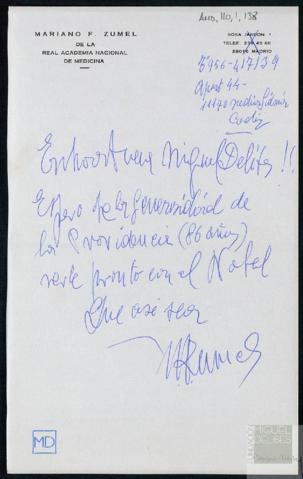 AMD, 110, 1, 138
MARIANO F. ZUMEL
DE LA
REAL ACADEMIA NACIONAL
DE MEDICINA
ROSA JARDON 1
28016 MADRID
T 956-417/39
Apart 44-
11170 Medina Sidonia
Cadiz
Enhorabuena Miguel Delibes!!
Espero de la generosidad de
la Providencia (86 años)
verte pronto con el Nobel
Que asi sea
MD
MIGUEL
DELIBES